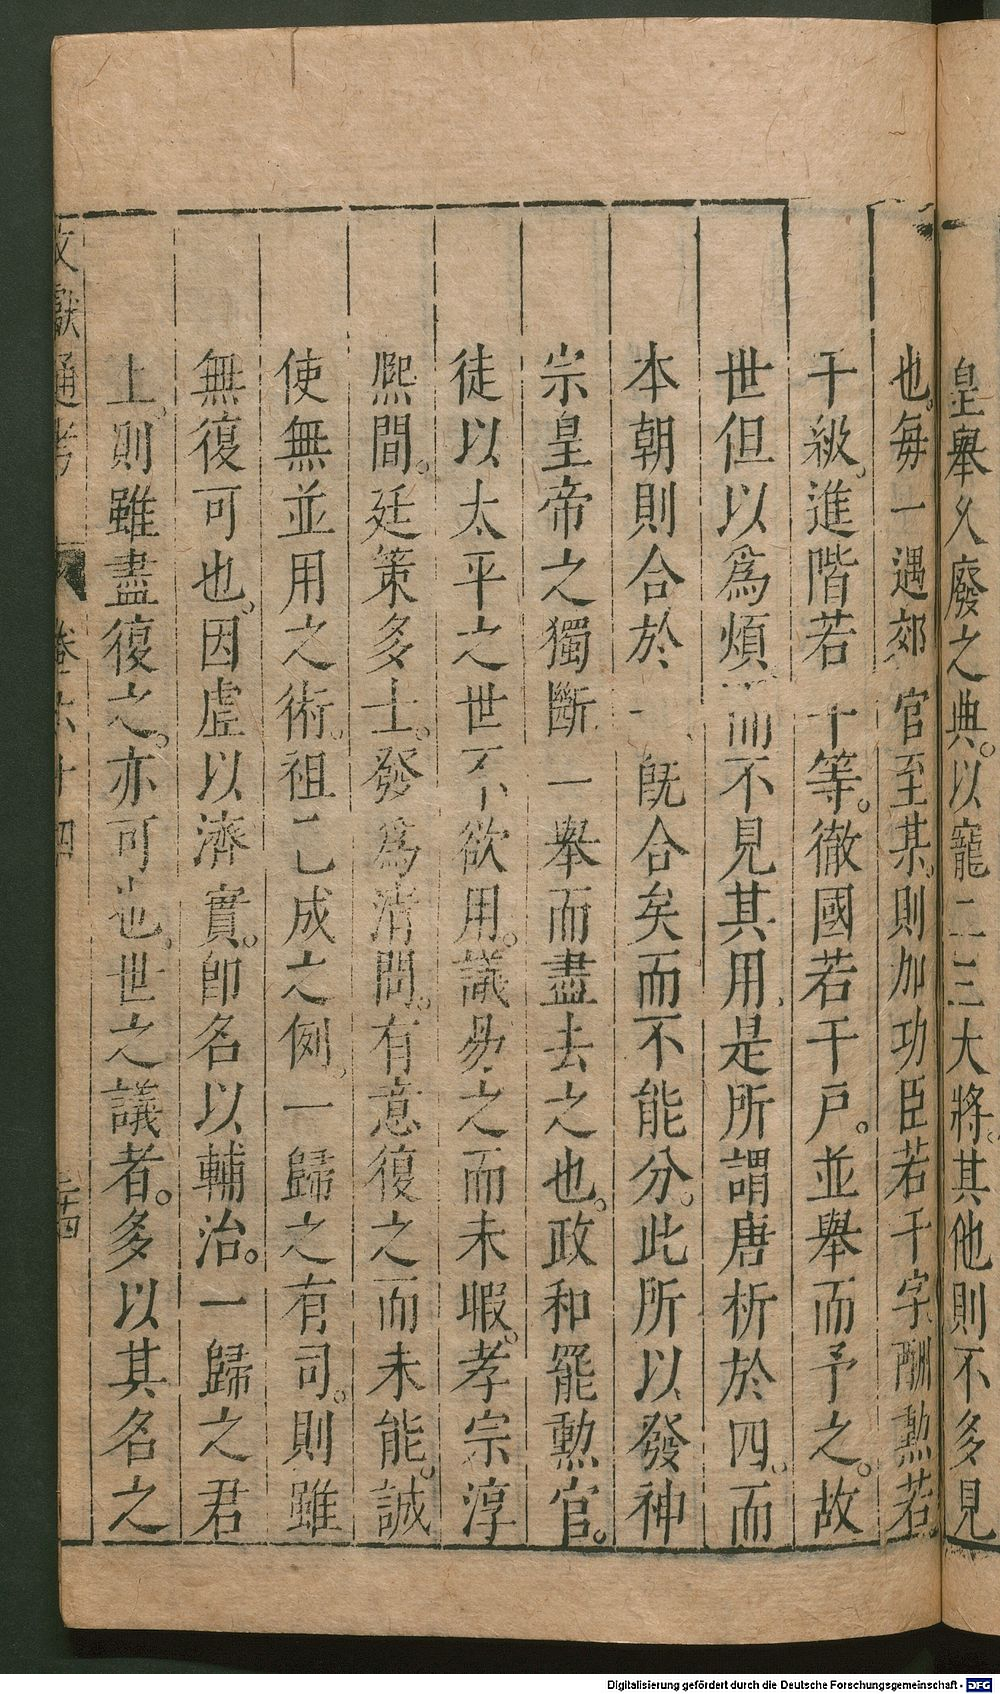 皇舉久廢之典。以寵二三大將。其他則不多見
也。每一遇郊官至某。則加功臣若干字、酬勲若
干級。進階若干等。徹國若干戶。並舉而予之。故
世但以爲煩而不見其用。是所謂唐析於四。而
本朝則合於一既合矣而不能分。此所以發神
宗皇帝之獨斷一舉而盡去之也。政和罷勲官。
徒以太平之世不欲用。議易之而未暇。孝宗淳
熈間。廷策多士。發爲清問。有意復之而未能。誠
使無並用之術。祖已成之例。一歸之有司。則雖
無復可也。因虛以濟實。卽名以輔治。一歸之君
上。則雖盡復之。亦可也。世之議者。多以其名之
文獻通考 卷六十四
Digitalisierung gefördert durch die Deutsche Forschungsgemeinschaft - DFG